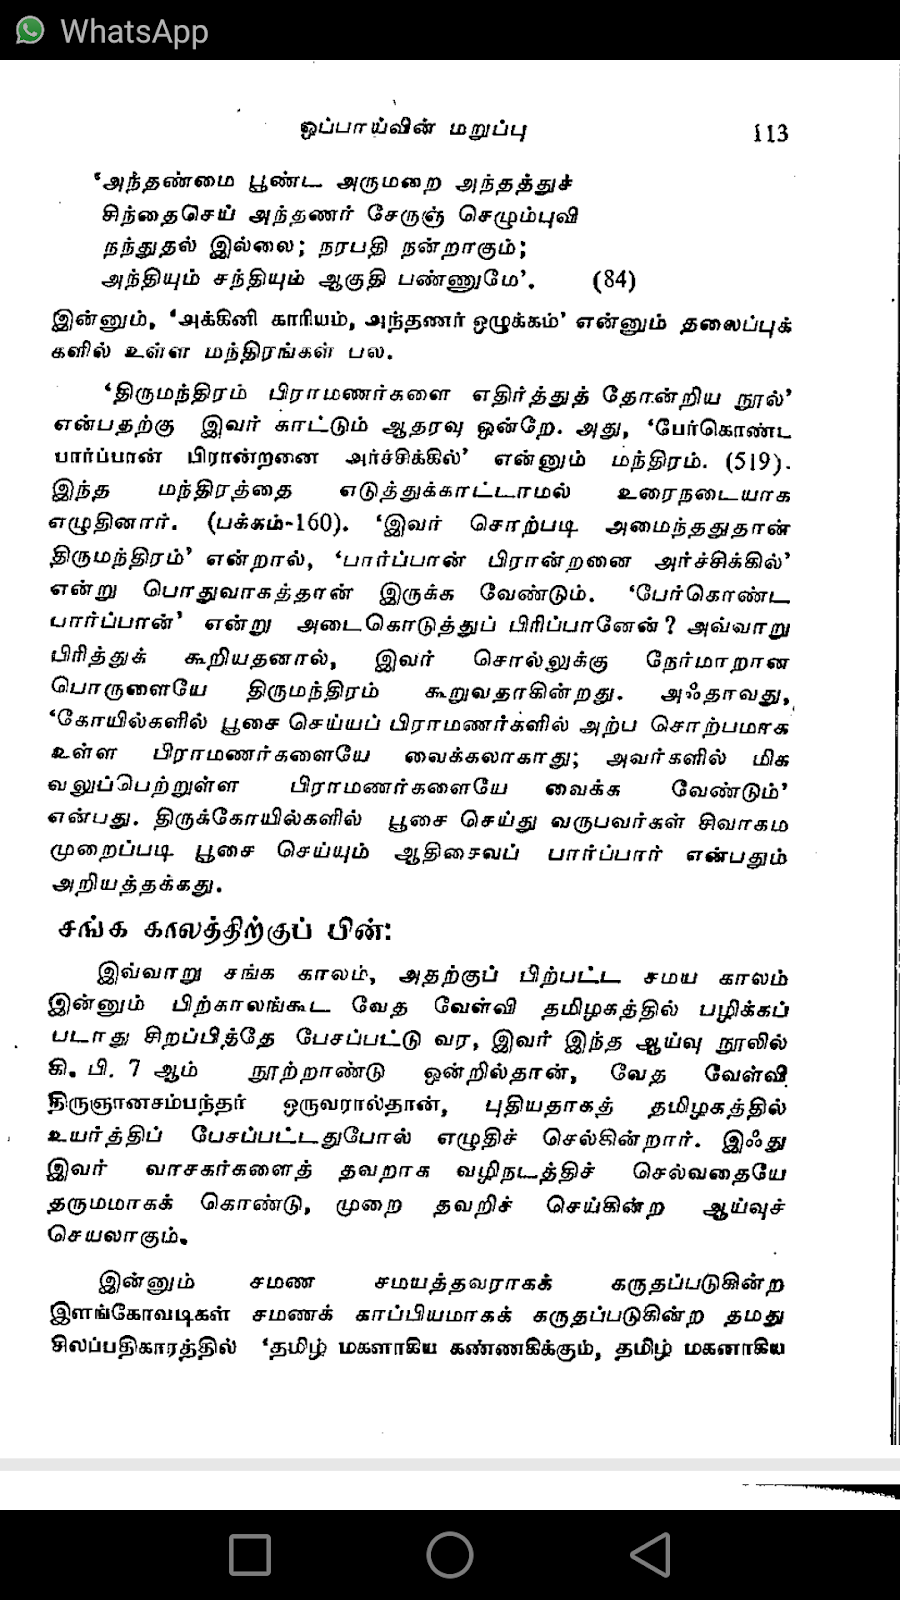 WhatsApp
ஒப்பாய்வின் மறுப்பு 113
‘அந்தண்மை பூண்ட அருமறை அந்தத்துச்
சிந்தைசெய் அந்தணர் சேருஞ் செழும்புவி
நந்துதல் இல்லை; நரபதி நன்றாகும்;
அந்தியும் சந்தியும் ஆகுதி பண்ணுமே’. (84)
இன்னும், ‘அக்கினி காரியம், அந்தணர் ஒழுக்கம்’ என்னும் தலைப்புக்
களில் உள்ள மந்திரங்கள் பல.
‘திருமந்திரம் பிராமணர்களை எதிர்த்துத் தோன்றிய நூல்’
என்பதற்கு இவர் காட்டும் ஆதரவு ஒன்றே. அது, ‘பேர்கொண்ட
பார்ப்பான் பிரான்றனை அர்ச்சிக்கில்’ என்னும் மந்திரம். (519).
இந்த மந்திரத்தை எடுத்துக்காட்டாமல் உரைநடையாக
எழுதினார். (பக்கம்-160). ‘இவர் சொற்படி அமைந்ததுதான்
திருமந்திரம்’ என்றால், ‘பார்ப்பான் பிரான்றனை அர்ச்சிக்கில்’
என்று பொதுவாகத்தான் இருக்க வேண்டும். ‘பேர்கொண்ட
பார்ப்பான்’ என்று அடைகொடுத்துப் பிரிப்பானேன்? அவ்வாறு
பிரித்துக் கூறியதனால், இவர் சொல்லுக்கு நேர்மாறான
பொருளையே திருமந்திரம் கூறுவதாகின்றது. அஃதாவது,
‘கோயில்களில் பூசை செய்யப் பிராமணர்களில் அற்ப சொற்பமாக
உள்ள பிராமணர்களையே வைக்கலாகாது; அவர்களில் மிக
வலுப்பெற்றுள்ள பிராமணர்களையே வைக்க வேண்டும்’
என்பது. திருக்கோயில்களில் பூசை செய்து வருபவர்கள் சிவாகம
முறைப்படி பூசை செய்யும் ஆதிசைவப் பார்ப்பார் என்பதும்
அறியத்தக்கது.
சங்க காலத்திற்குப் பின்:
இவ்வாறு சங்க காலம், அதற்குப் பிற்பட்ட சமய காலம்
இன்னும் பிற்காலங்கூட வேத வேள்வி தமிழகத்தில் பழிக்கப்
படாது சிறப்பித்தே பேசப்பட்டு வர, இவர் இந்த ஆய்வு நூலில்
கி. பி. 7 ஆம் நூற்றாண்டு ஒன்றில்தான், வேத வேள்வி
திருஞானசம்பந்தர் ஒருவரால்தான், புதியதாகத் தமிழகத்தில்
உயர்த்திப் பேசப்பட்டதுபோல் எழுதிச் செல்கின்றார். இஃது
இவர் வாசகர்களைத் தவறாக வழிநடத்திச் செல்வதையே
தருமமாகக் கொண்டு, முறை தவறிச் செய்கின்ற ஆய்வுச்
செயலாகும்.
இன்னும் சமண சமயத்தவராகக் கருதப்படுகின்ற
இளங்கோவடிகள் சமணக் காப்பியமாகக் கருதப்படுகின்ற தமது
சிலப்பதிகாரத்தில் ‘தமிழ் மகளாகிய கண்ணகிக்கும், தமிழ் மகனாகிய